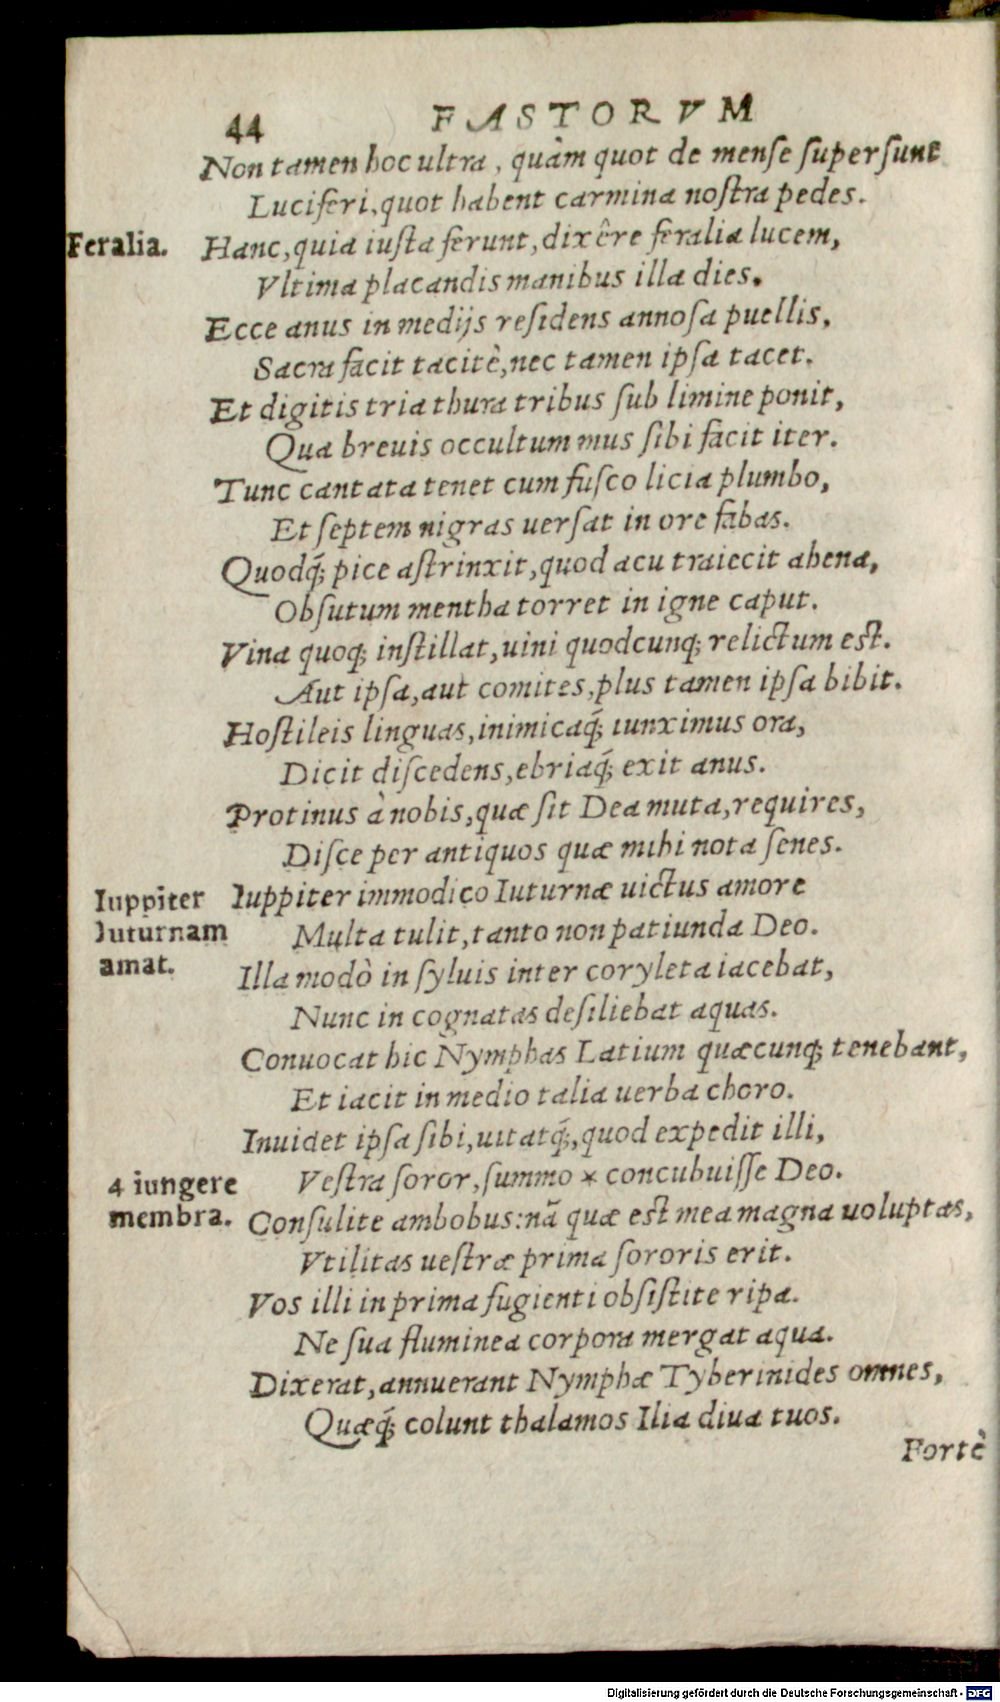 44 FASTORVM
Non tamen hoc ultra, quàm quot de mense supersunt
Luciferi, quot habent carmina nostra pedes.
Feralia. Hanc, quia iusta ferunt, dixêre feralia lucem,
Vltima placandis manibus illa dies.
Ecce anus in medijs residens annosa puellis,
Sacra facit tacitè, nec tamen ipsa tacet.
Et digitis tria thura tribus sub limine ponit,
Qua breuis occultum mus sibi facit iter.
Tunc cantata tenet cum fusco licia plumbo,
Et septem nigras uersat in ore fabas.
Quodq́; pice astrinxit, quod acu traiecit ahena,
Obsutum mentha torret in igne caput.
Vina quoq; instillat, uini quodcunq; relictum est.
Aut ipsa, aut comites, plus tamen ipsa bibit.
Hostileis linguas, inimicaq́; iunximus ora,
Dicit discedens, ebriaq́; exit anus.
Protinus à nobis, quæ sit Dea muta, requires,
Disce per antiquos quæ mihi nota senes.
Iuppiter Iuppiter immodico Iuturnæ uictus amore
Iuturnam Multa tulit, tanto non patiunda Deo.
amat. Illa modò in syluis inter coryleta iacebat,
Nunc in cognatas desiliebat aquas.
Conuocat hic Nymphas Latium quæcunq; tenebant,
Et iacit in medio talia uerba choro.
Inuidet ipsa sibi, uitatq́;, quod expedit illi,
4 iungere Vestra soror, summo * concubuisse Deo.
membra. Consulite ambobus: nã quæ est mea magna uoluptas,
Vtilitas uestræ prima sororis erit.
Vos illi in prima fugienti obsistite ripa.
Ne sua fluminea corpora mergat aqua.
Dixerat, annuerant Nymphæ Tyberinides omnes,
Quæq́; colunt thalamos Ilia diua tuos.
Fortè
Digitalisierung gefördert durch die Deutsche Forschungsgemeinschaft - DFG